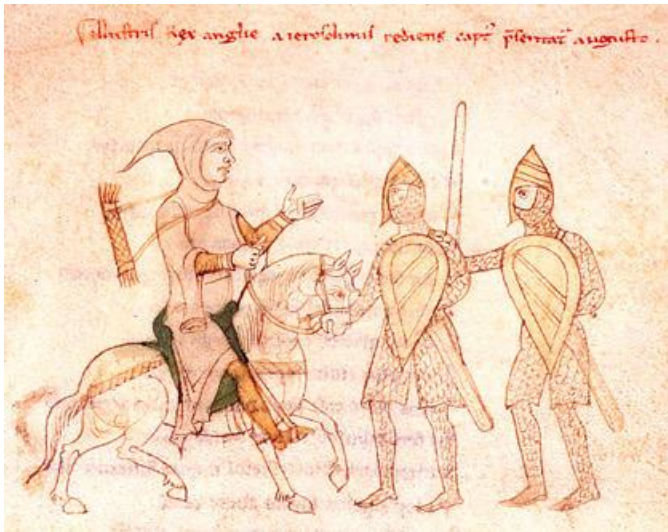 Illustris Rex anglie a ierosolimis rediens capt᾽ p̄sentat᾽ augusto.